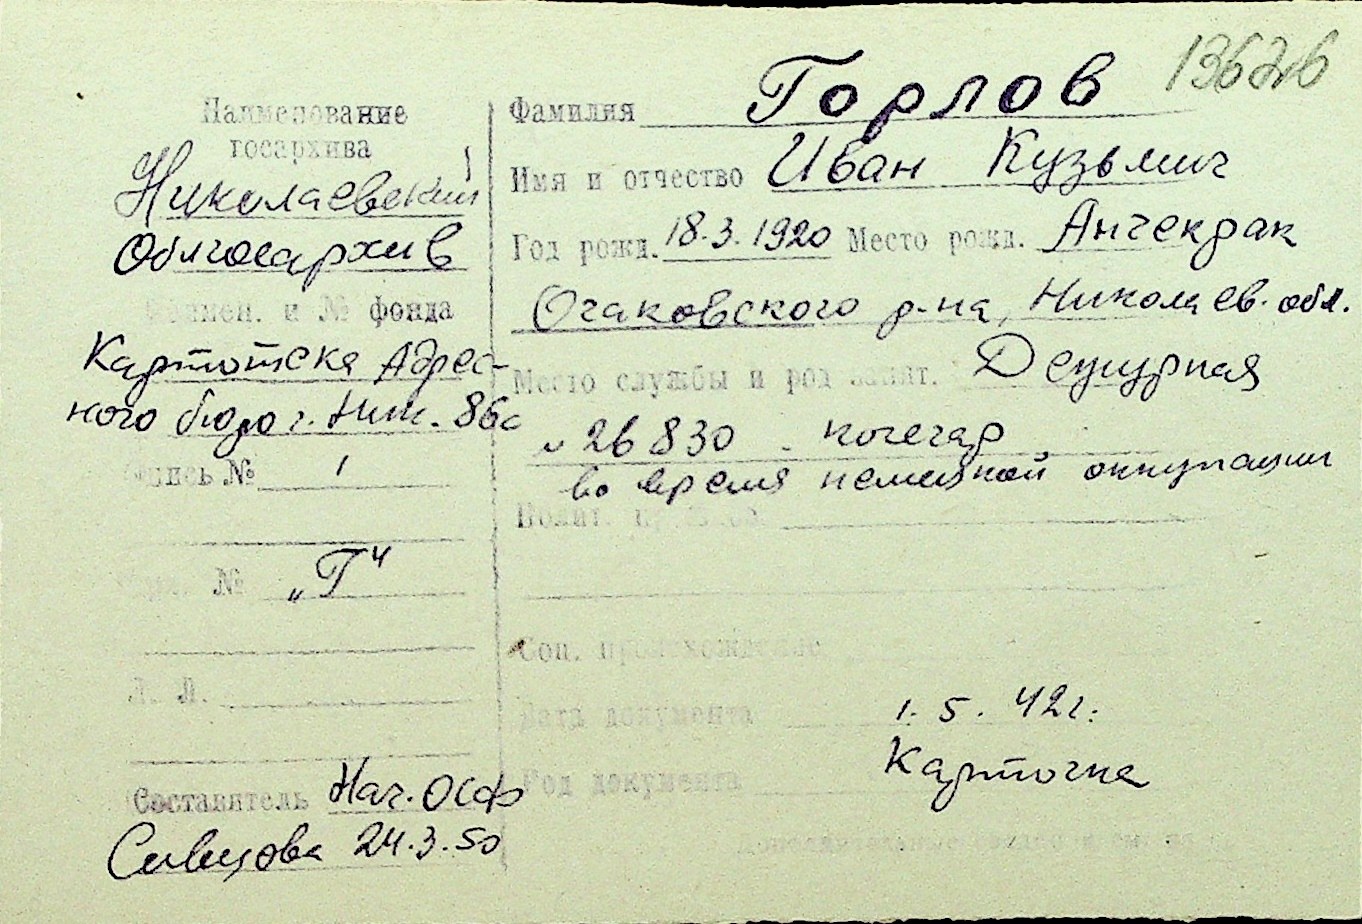 13626
Наименование
госархива
Николаевский
Облгосархив
Наимен. и № фонда
Картотека Адрес-
ного бюро г. Ник. 86с
Опись № 1
Ед. хр. № „Г“
Л. Л.
Составитель Нач. ОСФ
24.3.50
Фамилия Горлов
Имя и отчество Иван Кузьмич
Год рожд. 18.3.1920 Место рожд. Анчекрак
Очаковского р-на, Николаев. обл.
Место службы и род занят. Дежурная
26830 - кочегар
во время немецкой оккупации
Полит.
Соц. происхождение
Дата документа 1.5.42г.
Род документа Карточка